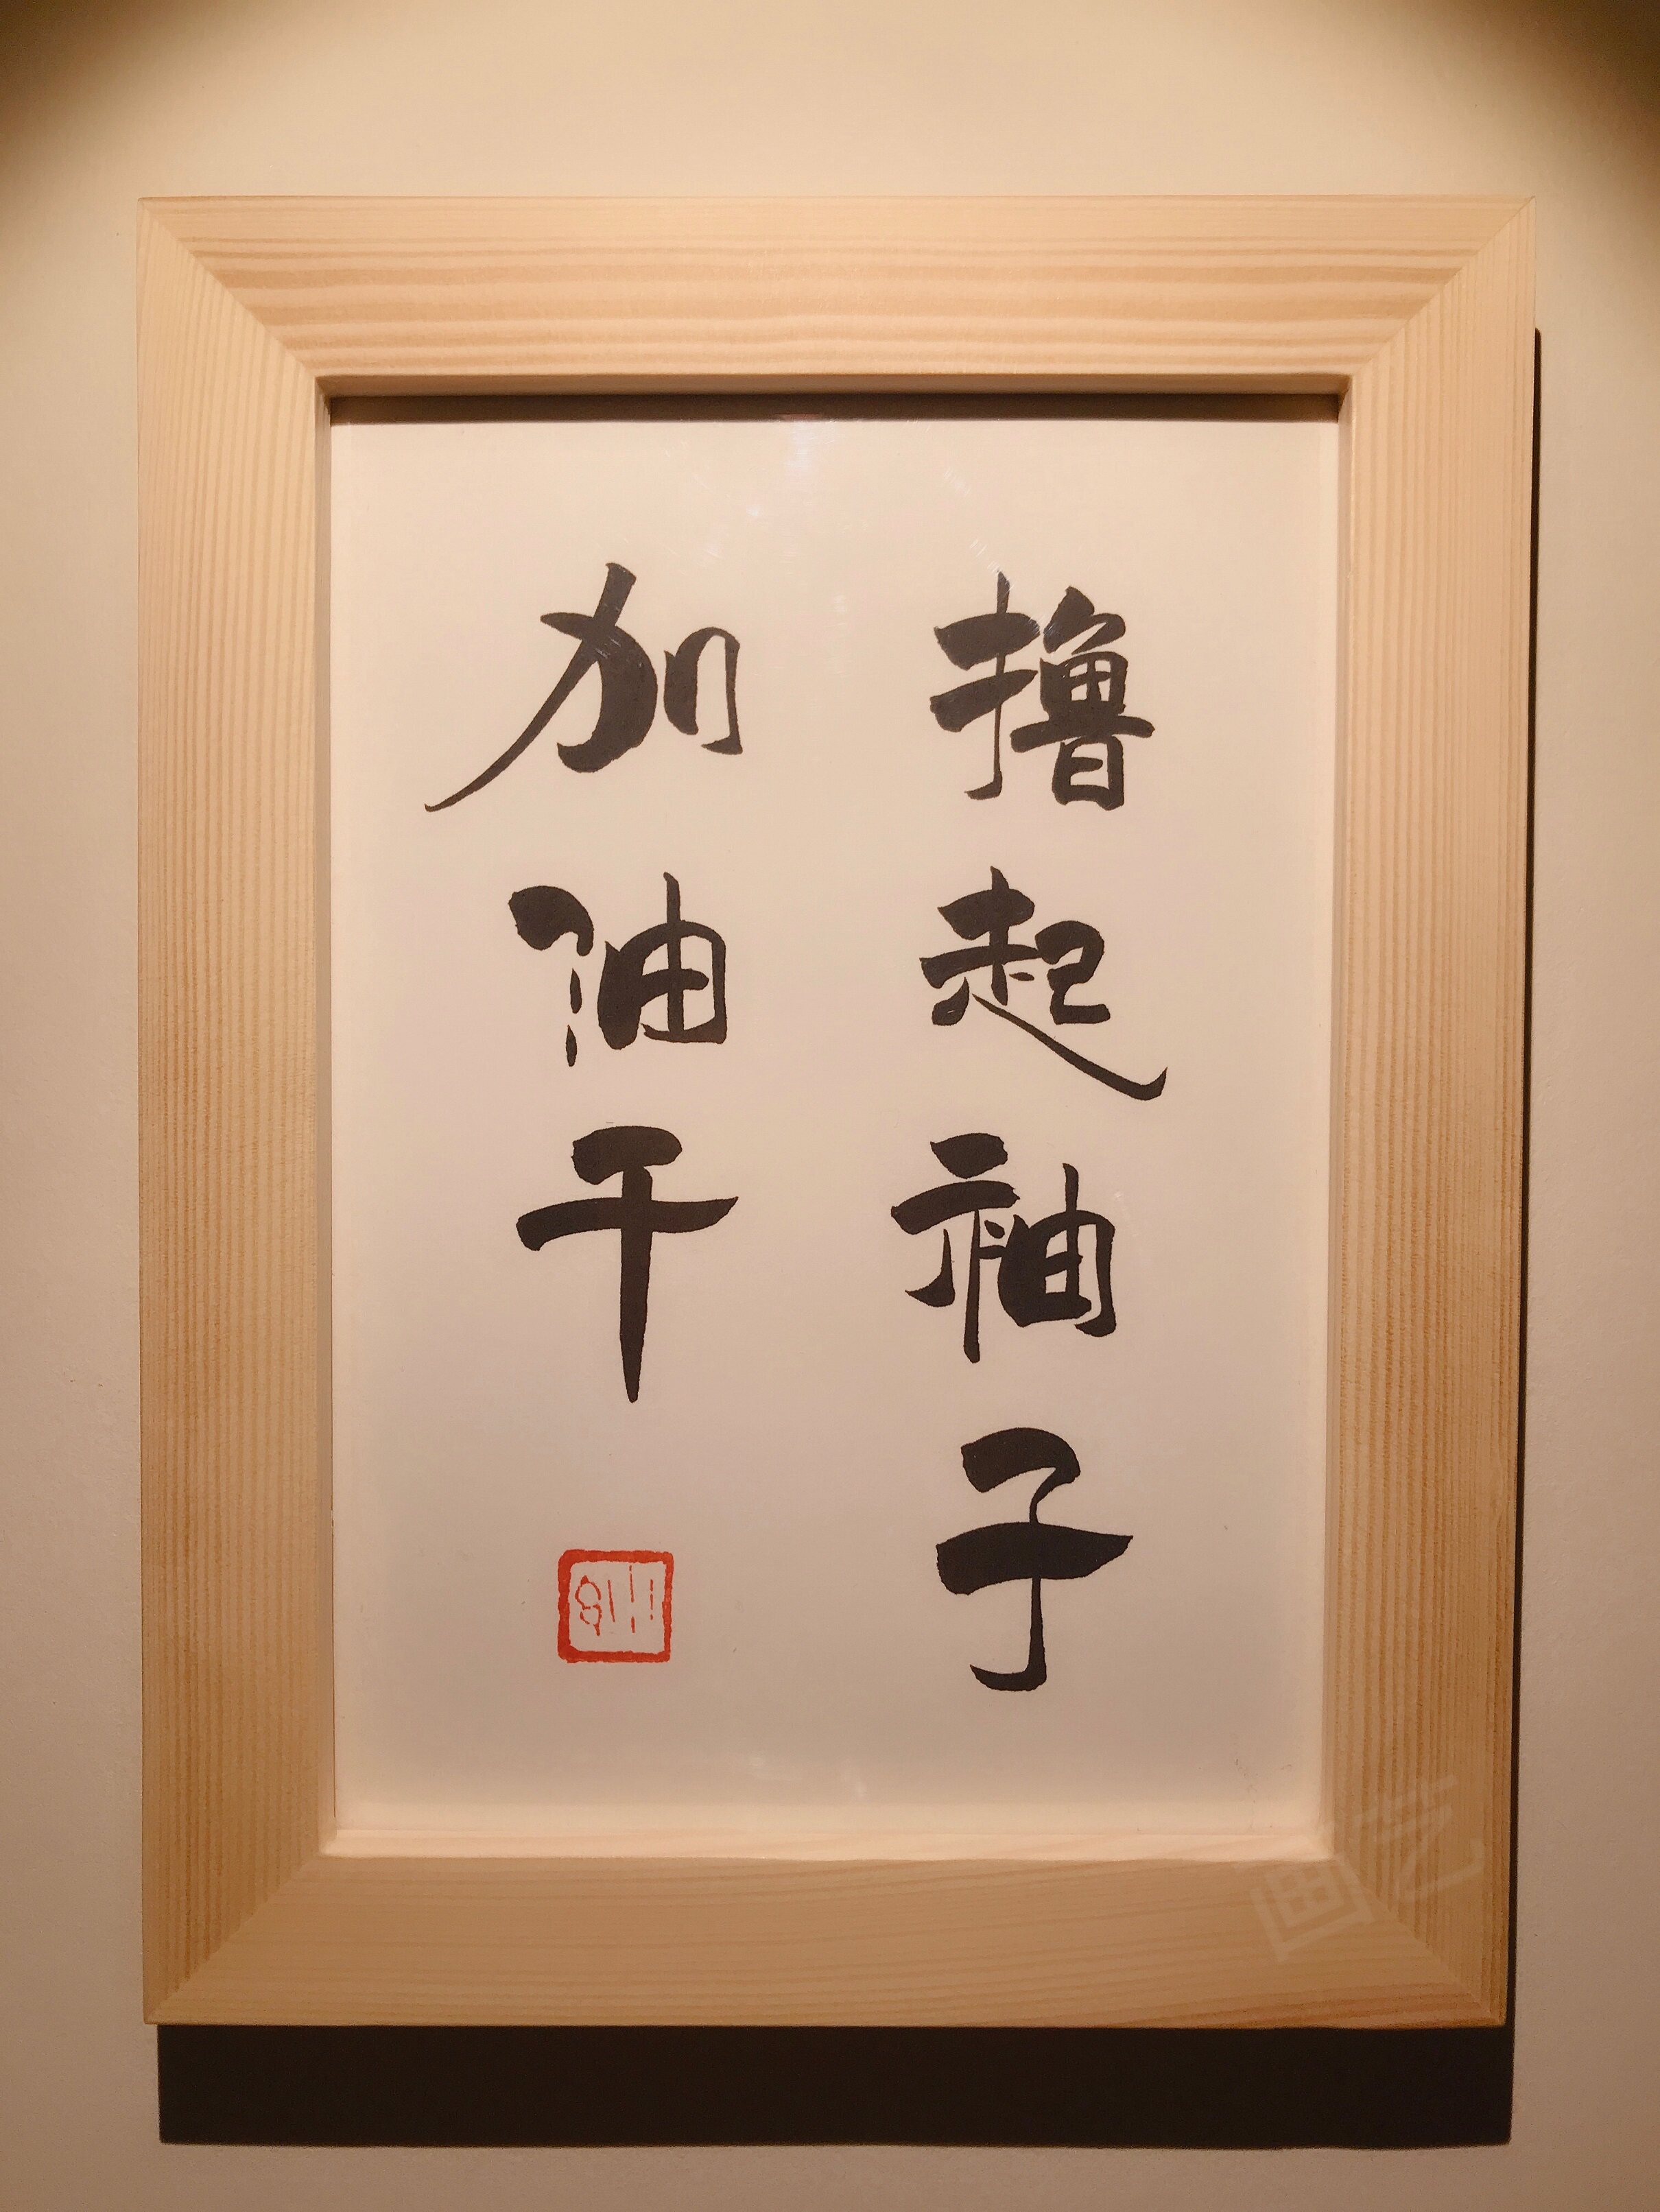 撸起袖子
加油干
艺画